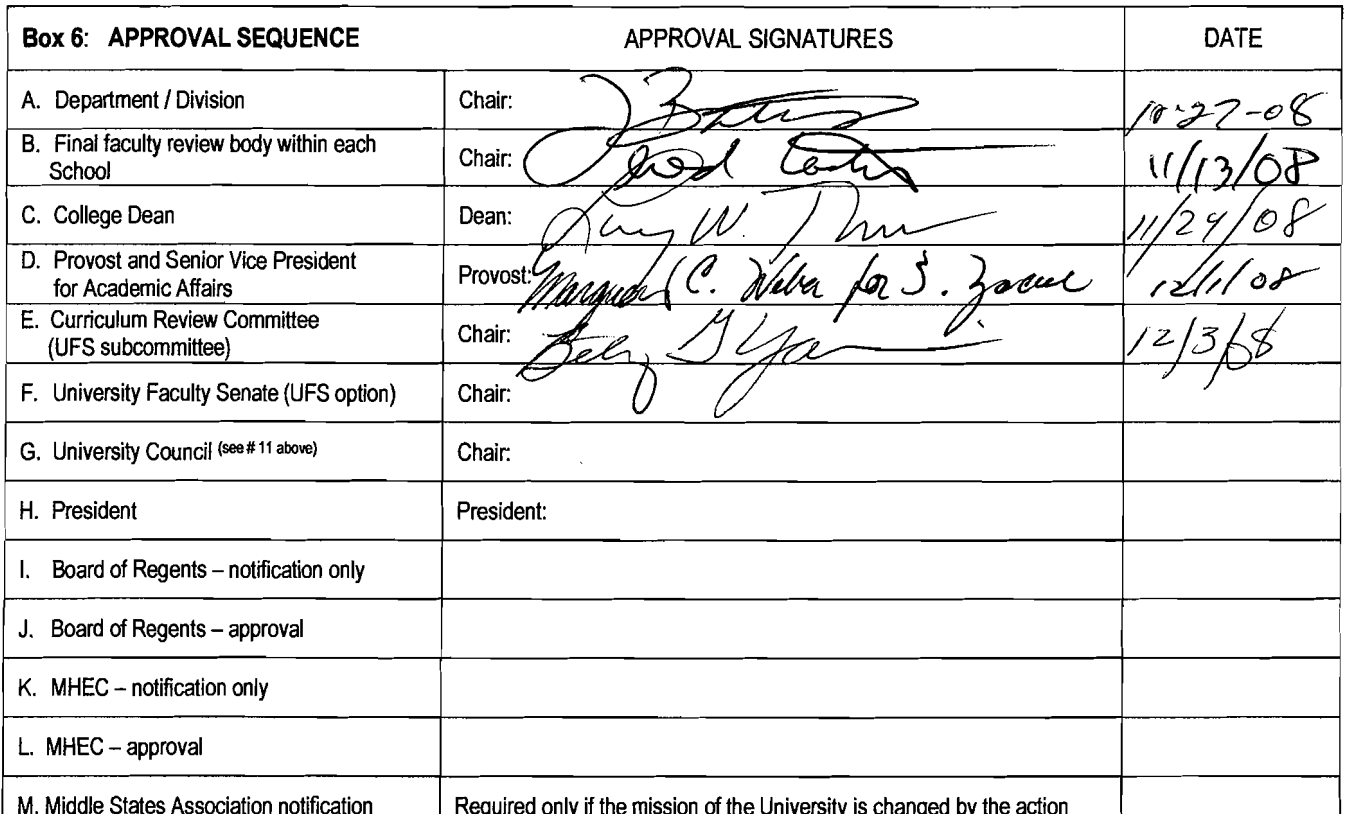 Box 6: APPROVAL SEQUENCE APPROVAL SIGNATURES DATE
A. Department / Division Chair: 10-27-08
B. Final faculty review body within each
School Chair: 11/13/08
C. College Dean Dean: W. 11/24/08
D. Provost and Senior Vice President
for Academic Affairs Provost: C. Weber for S. 12/1/08
E. Curriculum Review Committee
(UFS subcommittee) Chair: 12/3/08
F. University Faculty Senate (UFS option) Chair:
G. University Council (see # 11 above) Chair:
H. President President:
I. Board of Regents – notification only
J. Board of Regents – approval
K. MHEC – notification only
L. MHEC – approval
M. Middle States Association notification Required only if the mission of the University is changed by the action